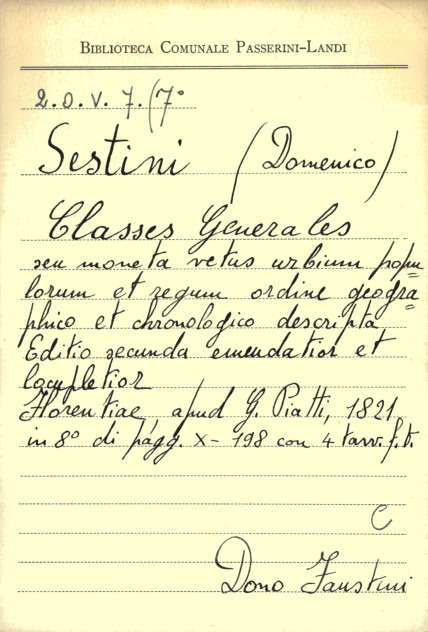 Biblioteca Comunale Passerini-Landi
2.O.V. 7.(7°
Sestini (Domenico)
Classes Generales
seu moneta vetus urbium popu=
lorum et regum ordine geogra=
phico et chronologico descripta
Editio secunda emendatior et
locupletior
Florentiae, apud G. Piatti, 1821
in 8° di pagg. X-198 con 4 tavv. f.t.
C
Dono Faustini